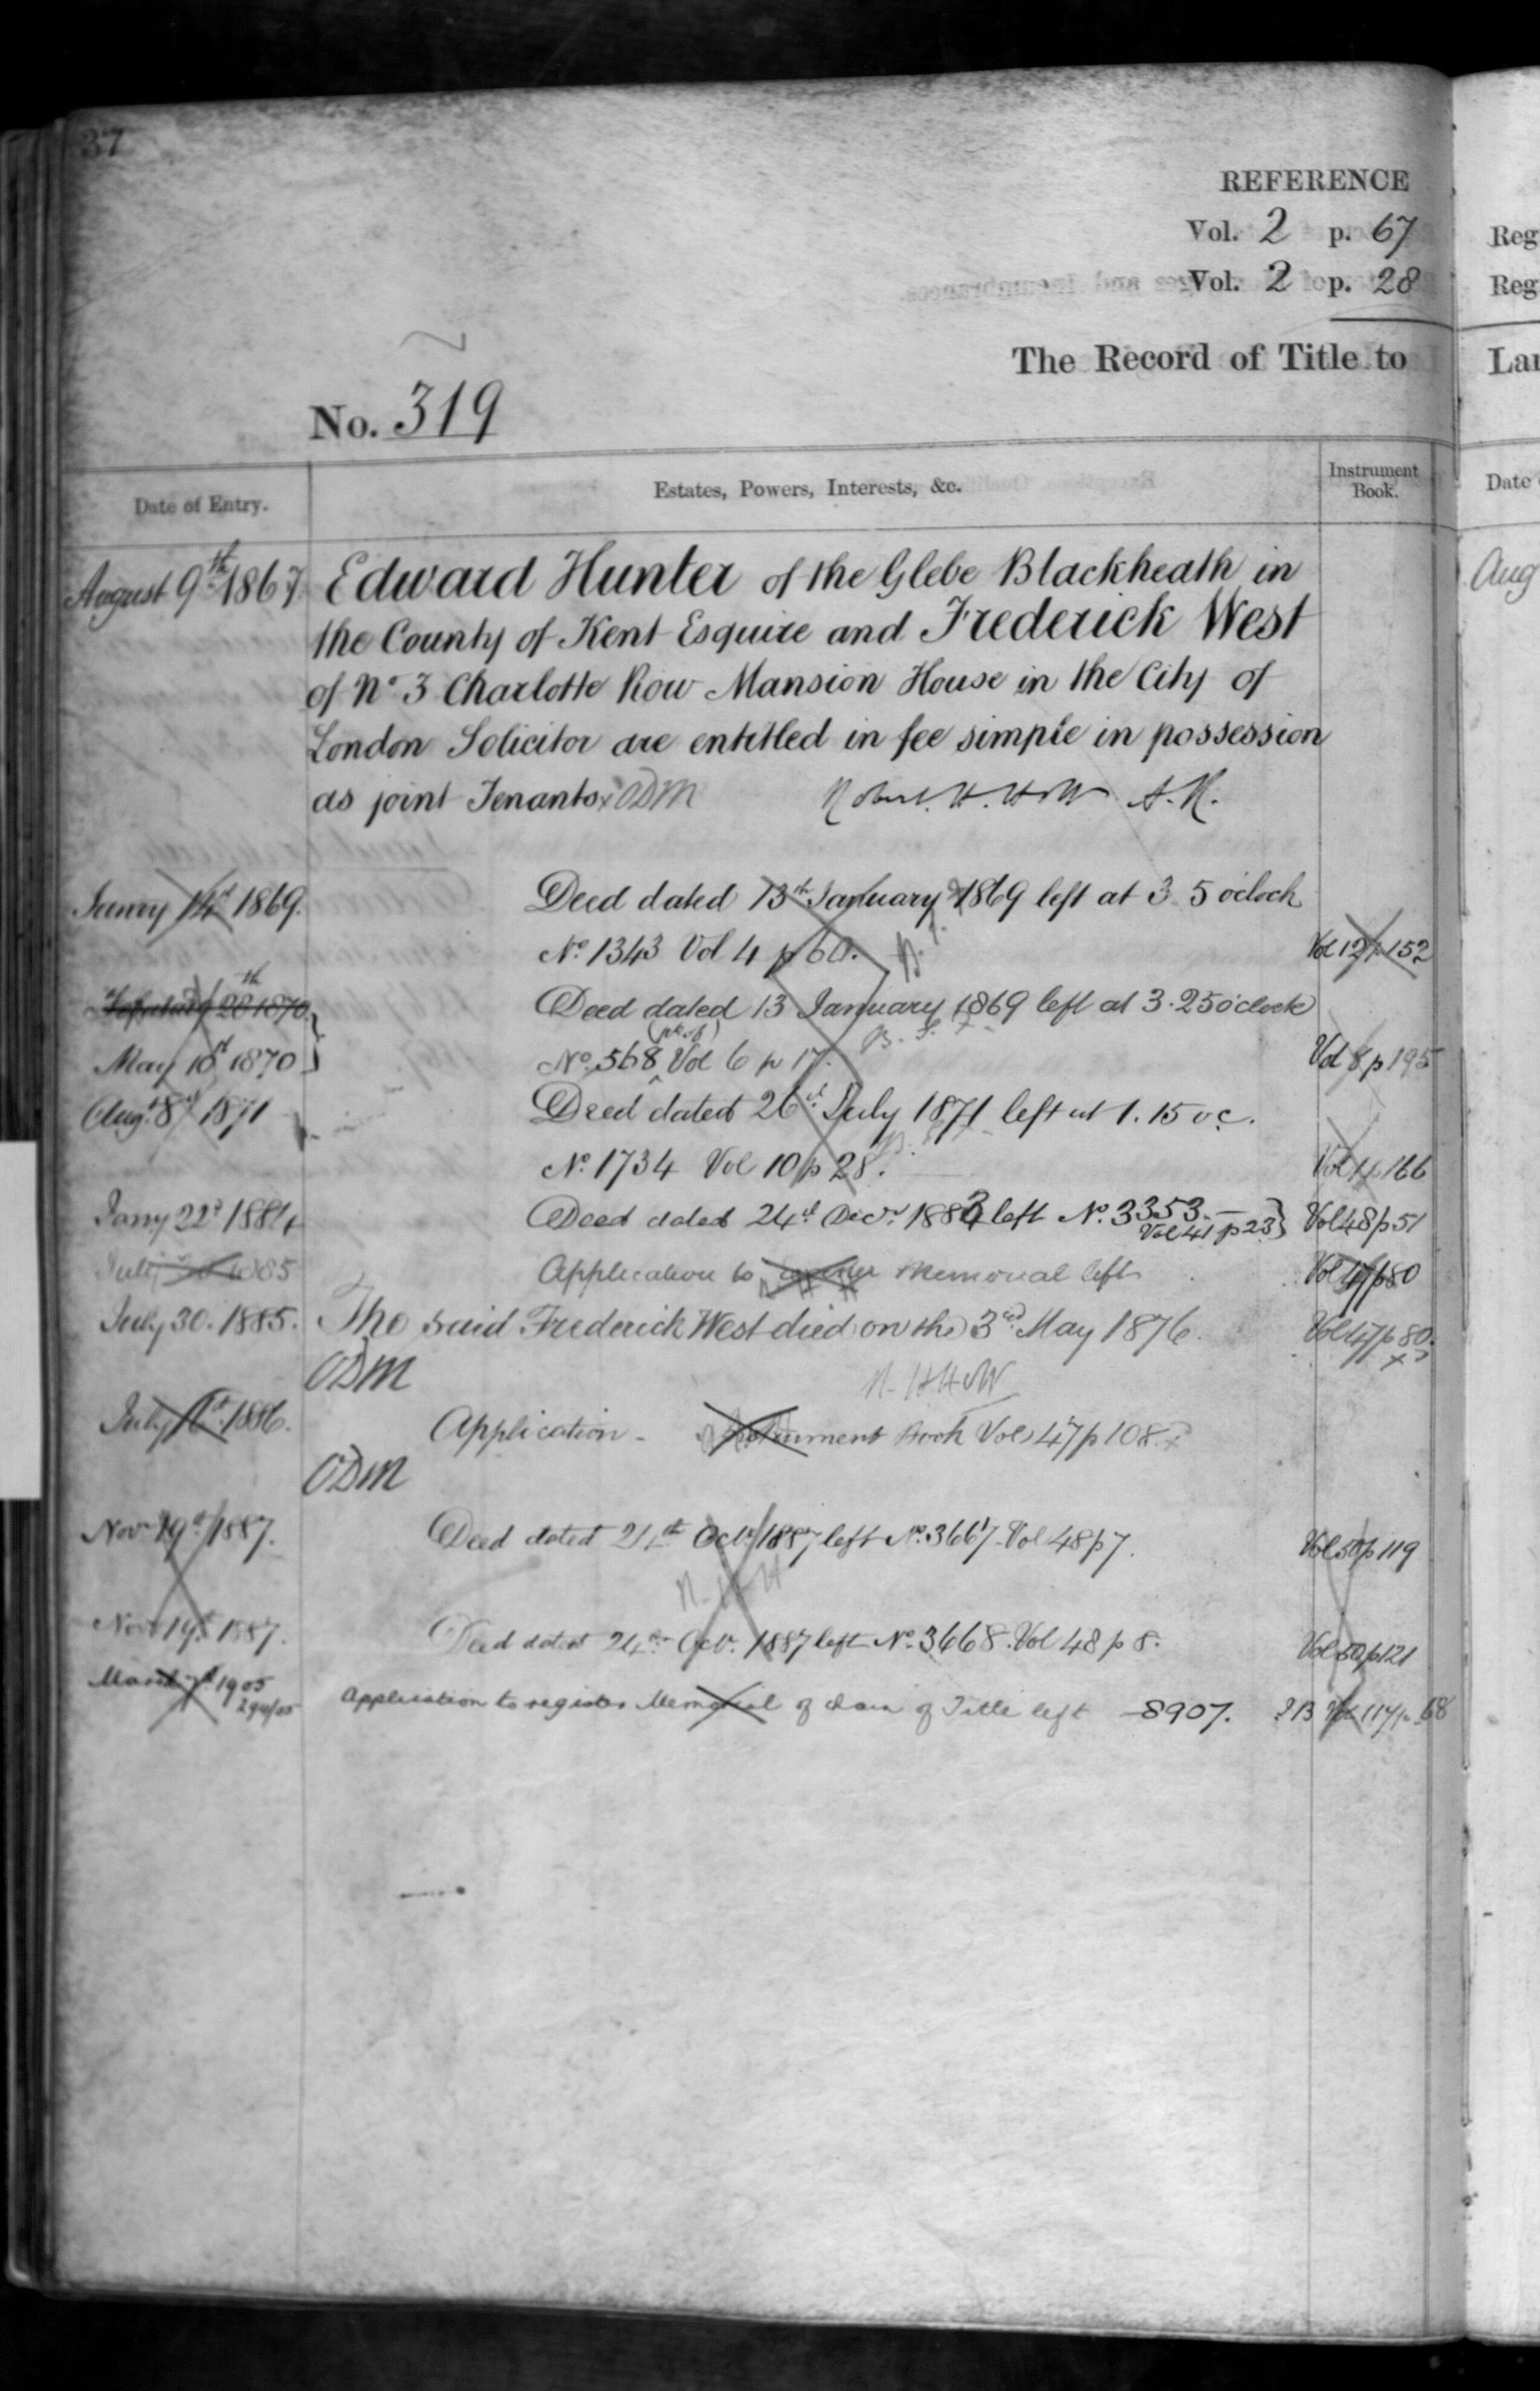 37
REFERENCE
Vol. 2 p. 67
Vol. 2 p. 28
The Record of Title to
No. 319
Date of Entry.
Estates, Powers, Interests, &c.
Instrument Book.
August 9th 1867 Edward Hunter of the Glebe Blackheath in
the County of Kent Esquire and Frederick West
of No 3 Charlotte Row Mansion House in the City of
London Solicitor are entitled in fee simple in possession
as joint Tenants ODM Robert. H. Holt A.R.
14th 1869. Deed dated 13th January 1869 left at 3.5 oclock
No. 1343 Vol 4 p 60. Vol 12 p 152
1870 Deed dated 13 January 1869 left at 3.25 oclock
May 10th 1870 No. 568 (pt of) Vol 6 p 17. Vol 8 p 195
Augt. 8th 1871 Deed dated 26th July 1871 left at 1.15 oc.
No. 1734 Vol 10 p 28. Vol 14 166
Jany 22d 1884 Deed dated 24th Decr. 1883 left No. 3353.—
Vol 41 p 23 Vol 48 p 51
July 30 1885 Application to Memorial left Vol 47 p 80
July 30. 1885. The said Frederick West died on the 3rd May 1876. Vol 47 p 80.
ODM
July 1886. Application - Instrument Book Vol 47 p 108.
ODM
Nov 19th 1887. Deed dated 24th Octr. 1887 left No. 3667. Vol 48 p 7. Vol 50 p 119
Nov 19th 1887. Deed dated 24th Octr. 1887 left No. 3668. Vol 48 p 8. Vol 50 p 121
March 7th 1905 Application to register Memorial of chain of Title left 8907. Vol 117 p. 68
294/05
Reg
Reg
Lan
Date
Aug